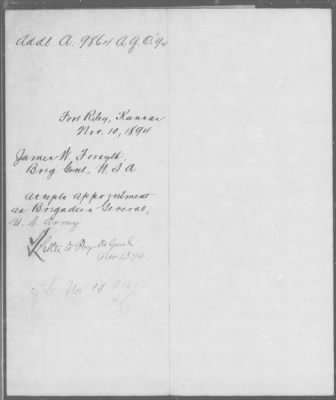 Addl A. 9864 A.G.O. 94
Fort Riley, Kansas
Nov. 10, 1894
James W. Forsyth
Brig Genl, U.S.A
accepts appointment
as Brigadier General,
U.S. Army
Letter to Paymr Genl
Nov 13.94.
Nov 13 94